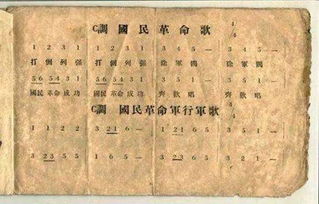 C調 國民革命歌 4/4
1 2 3 1 1 2 3 1 3 4 5 — 3 4 5 —
打倒列強 打倒列強 除軍閥 除軍閥
56 54 3 1 56 54 3 1 2 5 1 — 3 5 1 —
國民革命成功 國民革命成功 齊歡唱 齊歡唱
C調 國民革命軍行軍歌 4/4
1 1 2 2 3 21 6 — 1 21 6 5 3 2 1 —
3 23 5 5 1 6 5 — 3 23 6 5